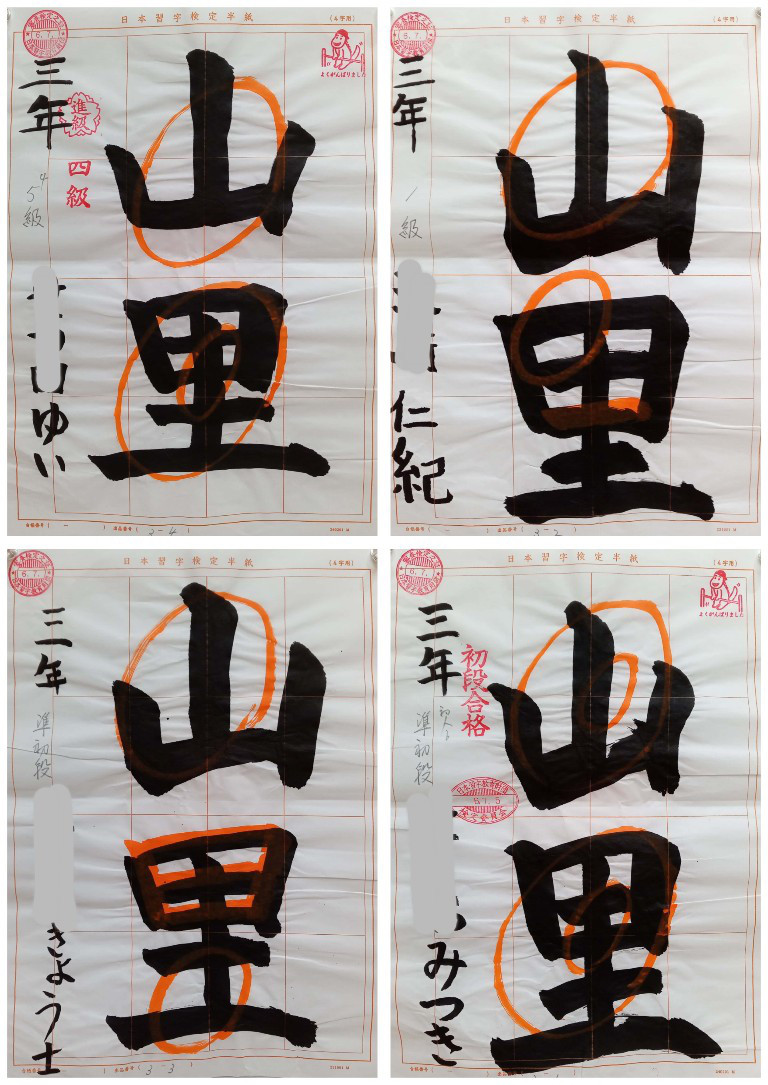 日本習字検定半紙
(4字用)
6.7.
よくがんばりました
三年
進級
四級
4
5級
山里
ゆい
合格番号 (
)
3-4
日本習字検定半紙
(4字用)
三年
1級
山里
仁紀
合格番号 (
3-2
日本習字検定半紙
(4字用)
6.7.
三年
準初段
山里
きよう士
3-3
日本習字検定半紙
(4字用)
6.7.
よくがんばりました
三年
初段合格
準初段
山里
みつき